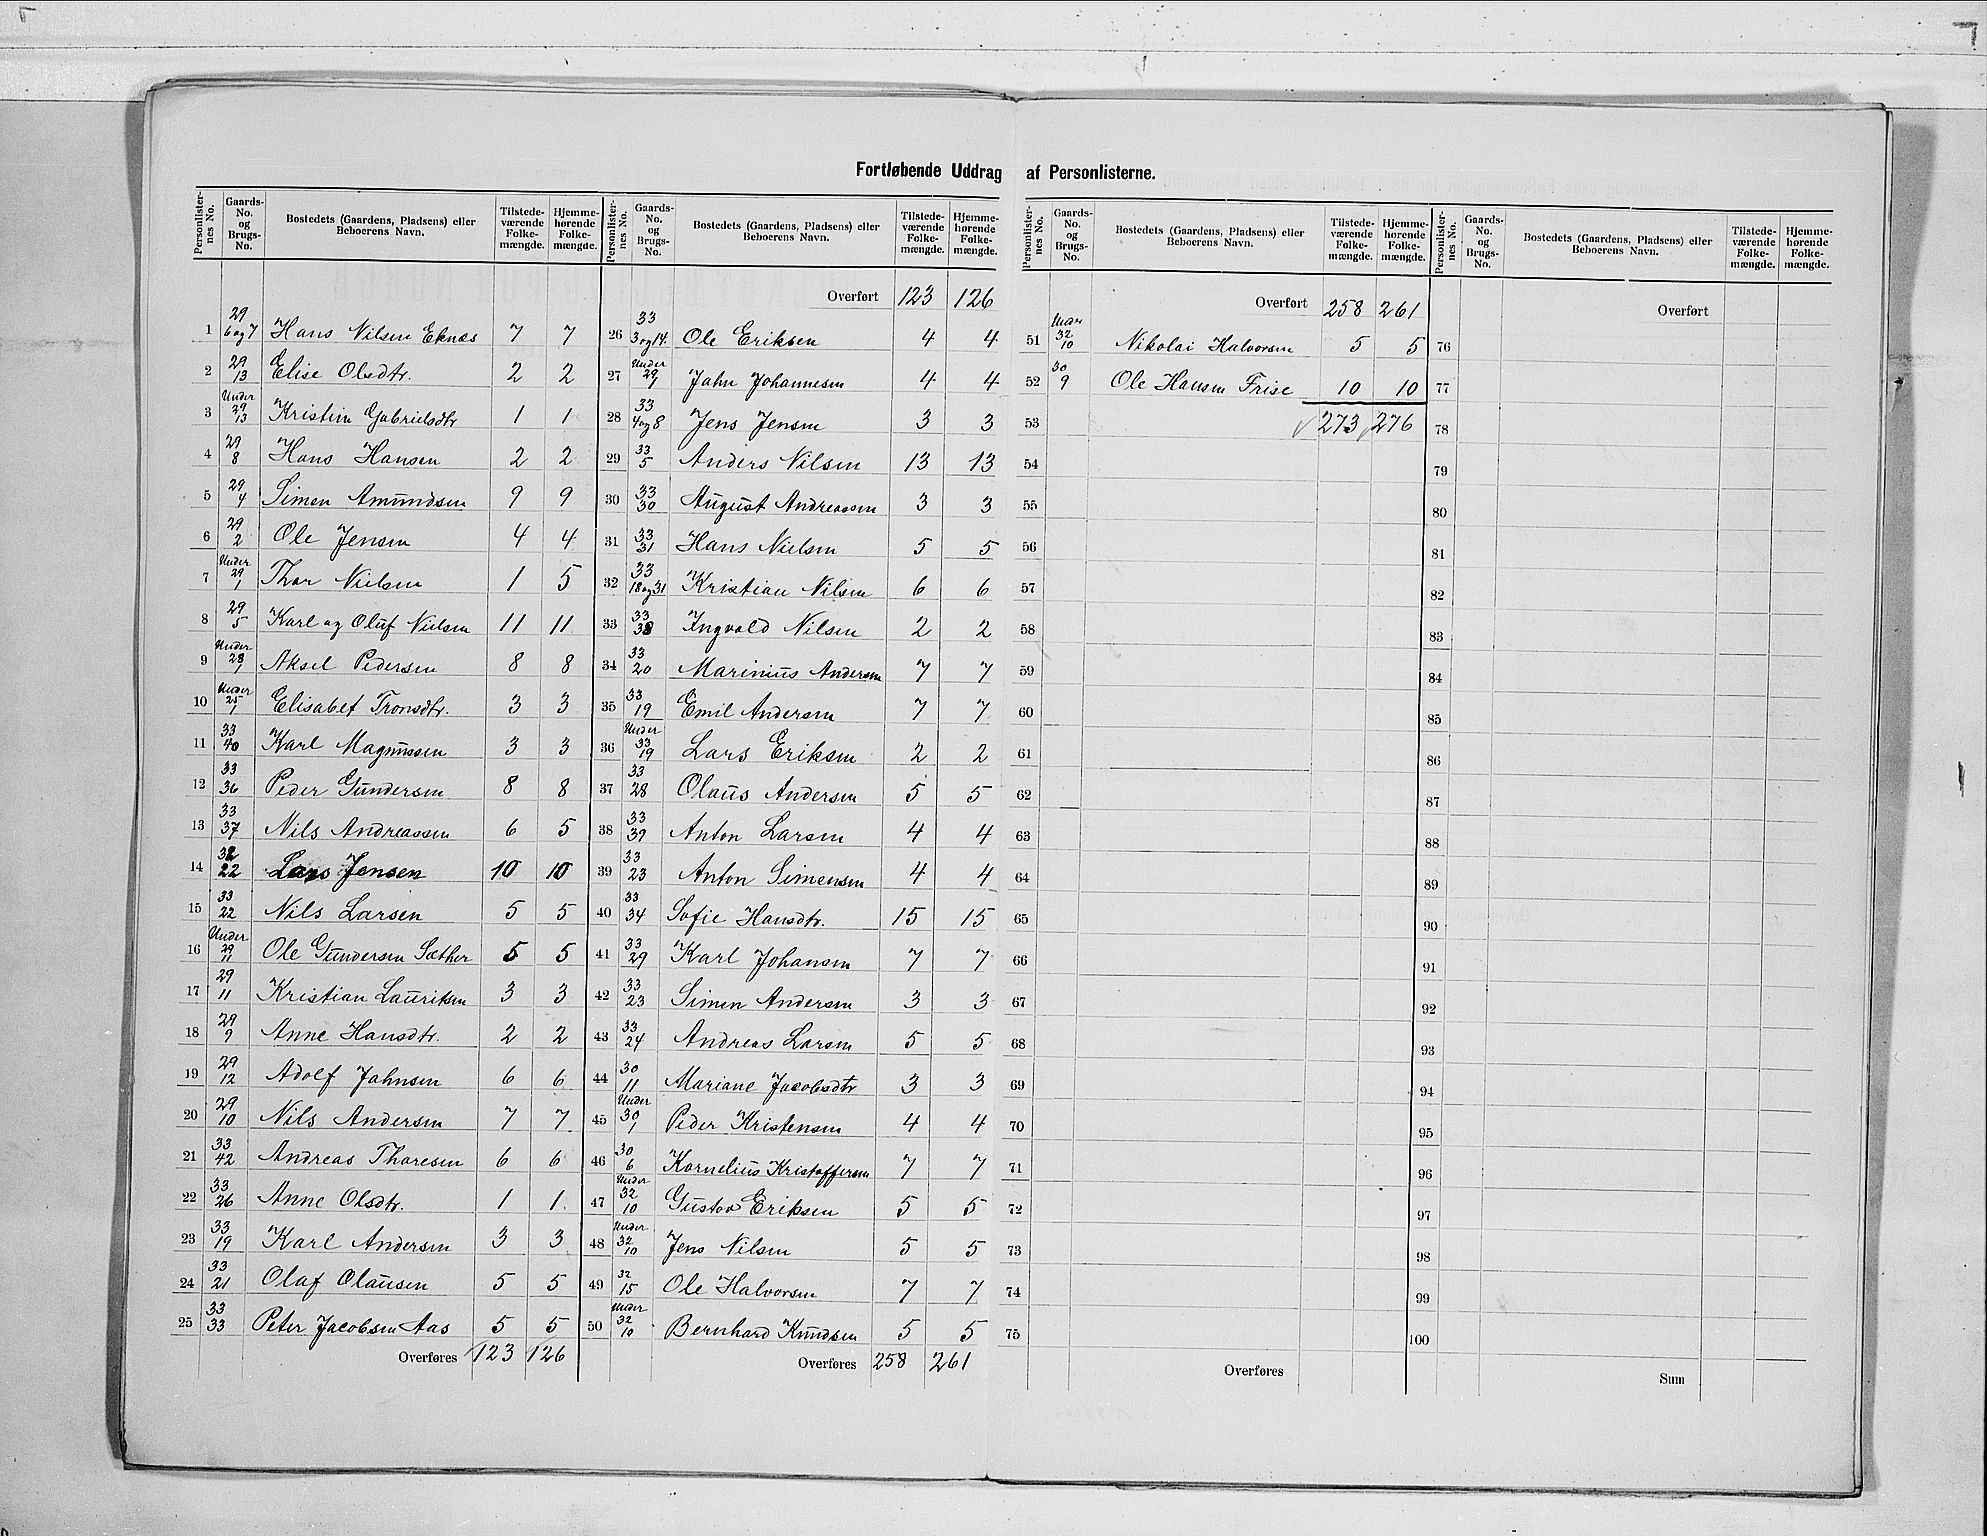 Fortløbende Uddrag af Personlisterne.
Personlister-nes No. | Gaards-No. og Brugs-No. | Bostedets (Gaardens, Pladsens) eller Beboerens Navn. | Tilstede-værende Folke-mængde. | Hjemme-hørende Folke-mængde.
1 | 29 6 og 7 | Hans Nilsen Eknæs | 7 | 7
2 | 29 13 | Elise Olsdtr. | 2 | 2
3 | Under 29 13 | Kristin Gabrielsdtr | 1 | 1
4 | 29 8 | Hans Hansen | 2 | 2
5 | 29 4 | Simen Amundsen | 9 | 9
6 | 29 2 | Ole Jensen | 4 | 4
7 | Under 29 1 | Thor Nielsen | 1 | 5
8 | 29 5 | Karl og Oluf Nielsen | 11 | 11
9 | Under 28 1 | Aksel Pedersen | 8 | 8
10 | Under 25 1 | Elisabet Tronsdtr. | 3 | 3
11 | 33 40 | Karl Magnussen | 3 | 3
12 | 33 36 | Peder Gundersen | 8 | 8
13 | 33 37 | Nils Andreassen | 6 | 5
14 | 32 22 | Lars Jensen | 10 | 10
15 | 33 22 | Nils Larsen | 5 | 5
16 | Under 29 11 | Ole Gundersen Sæther | 5 | 5
17 | 29 11 | Kristian Lauritsen | 3 | 3
18 | 29 9 | Anne Hansdtr. | 2 | 2
19 | 29 12 | Adolf Jahnsen | 6 | 6
20 | 29 10 | Nils Andersen | 7 | 7
21 | 33 42 | Andreas Thoresen | 6 | 6
22 | 33 26 | Anne Olsdtr. | 1 | 1
23 | 33 19 | Karl Andersen | 3 | 3
24 | 33 21 | Olaf Olausen | 5 | 5
25 | 33 33 | Peter Jacobsen Aas | 5 | 5
Overføres | 123 | 126
Personlister-nes No. | Gaards-No. og Brugs-No. | Bostedets (Gaardens, Pladsens) eller Beboerens Navn. | Tilstede-værende Folke-mængde. | Hjemme-hørende Folke-mængde.
Overført | 123 | 126
26 | 33 3 og 14. | Ole Eriksen | 4 | 4
27 | Under 29 1 | Jahn Johannesen | 4 | 4
28 | 33 4 og 8 | Jens Jensen | 3 | 3
29 | 33 5 | Anders Nilsen | 13 | 13
30 | 33 30 | August Andreassen | 3 | 3
31 | 33 31 | Hans Nielsen | 5 | 5
32 | 33 18 og 31 | Kristian Nilsen | 6 | 6
33 | 33 38 | Ingvald Nilsen | 2 | 2
34 | 33 20 | Marinius Andersen | 7 | 7
35 | 33 19 | Emil Andersen | 7 | 7
36 | Under 33 19 | Lars Eriksen | 2 | 2
37 | 33 28 | Olaus Andersen | 5 | 5
38 | 33 39 | Anton Larsen | 4 | 4
39 | 33 23 | Anton Simensen | 4 | 4
40 | 33 34 | Sofie Hansdtr. | 15 | 15
41 | 33 29 | Karl Johansen | 7 | 7
42 | 33 23 | Simen Andersen | 3 | 3
43 | 33 24 | Andreas Larsen | 5 | 5
44 | 30 11 | Mariane Jacobsdtr | 3 | 3
45 | Under 30 1 | Peder Kristensen | 4 | 4
46 | 30 6 | Kornelius Kristoffersen | 7 | 7
47 | Under 32 10 | Gustav Eriksen | 5 | 5
48 | Under 32 10 | Jens Nilsen | 5 | 5
49 | 32 15 | Ole Halvorsen | 7 | 7
50 | Under 32 10 | Bernhard Knudsen | 5 | 5
Overføres | 258 | 261
Personlister-nes No. | Gaards-No. og Brugs-No. | Bostedets (Gaardens, Pladsens) eller Beboerens Navn. | Tilstede-værende Folke-mængde. | Hjemme-hørende Folke-mængde.
Overført | 258 | 261
51 | Under 32 10 | Nikolai Halvorsen | 5 | 5
52 | 30 9 | Ole Hansen Frise | 10 | 10
53 | 273 | 276
54
55
56
57
58
59
60
61
62
63
64
65
66
67
68
69
70
71
72
73
74
75
Overføres
Personlister-nes No. | Gaards-No. og Brugs-No. | Bostedets (Gaardens, Pladsens) eller Beboerens Navn. | Tilstede-værende Folke-mængde. | Hjemme-hørende Folke-mængde.
Overført
76
77
78
79
80
81
82
83
84
85
86
87
88
89
90
91
92
93
94
95
96
97
98
99
100
Sum